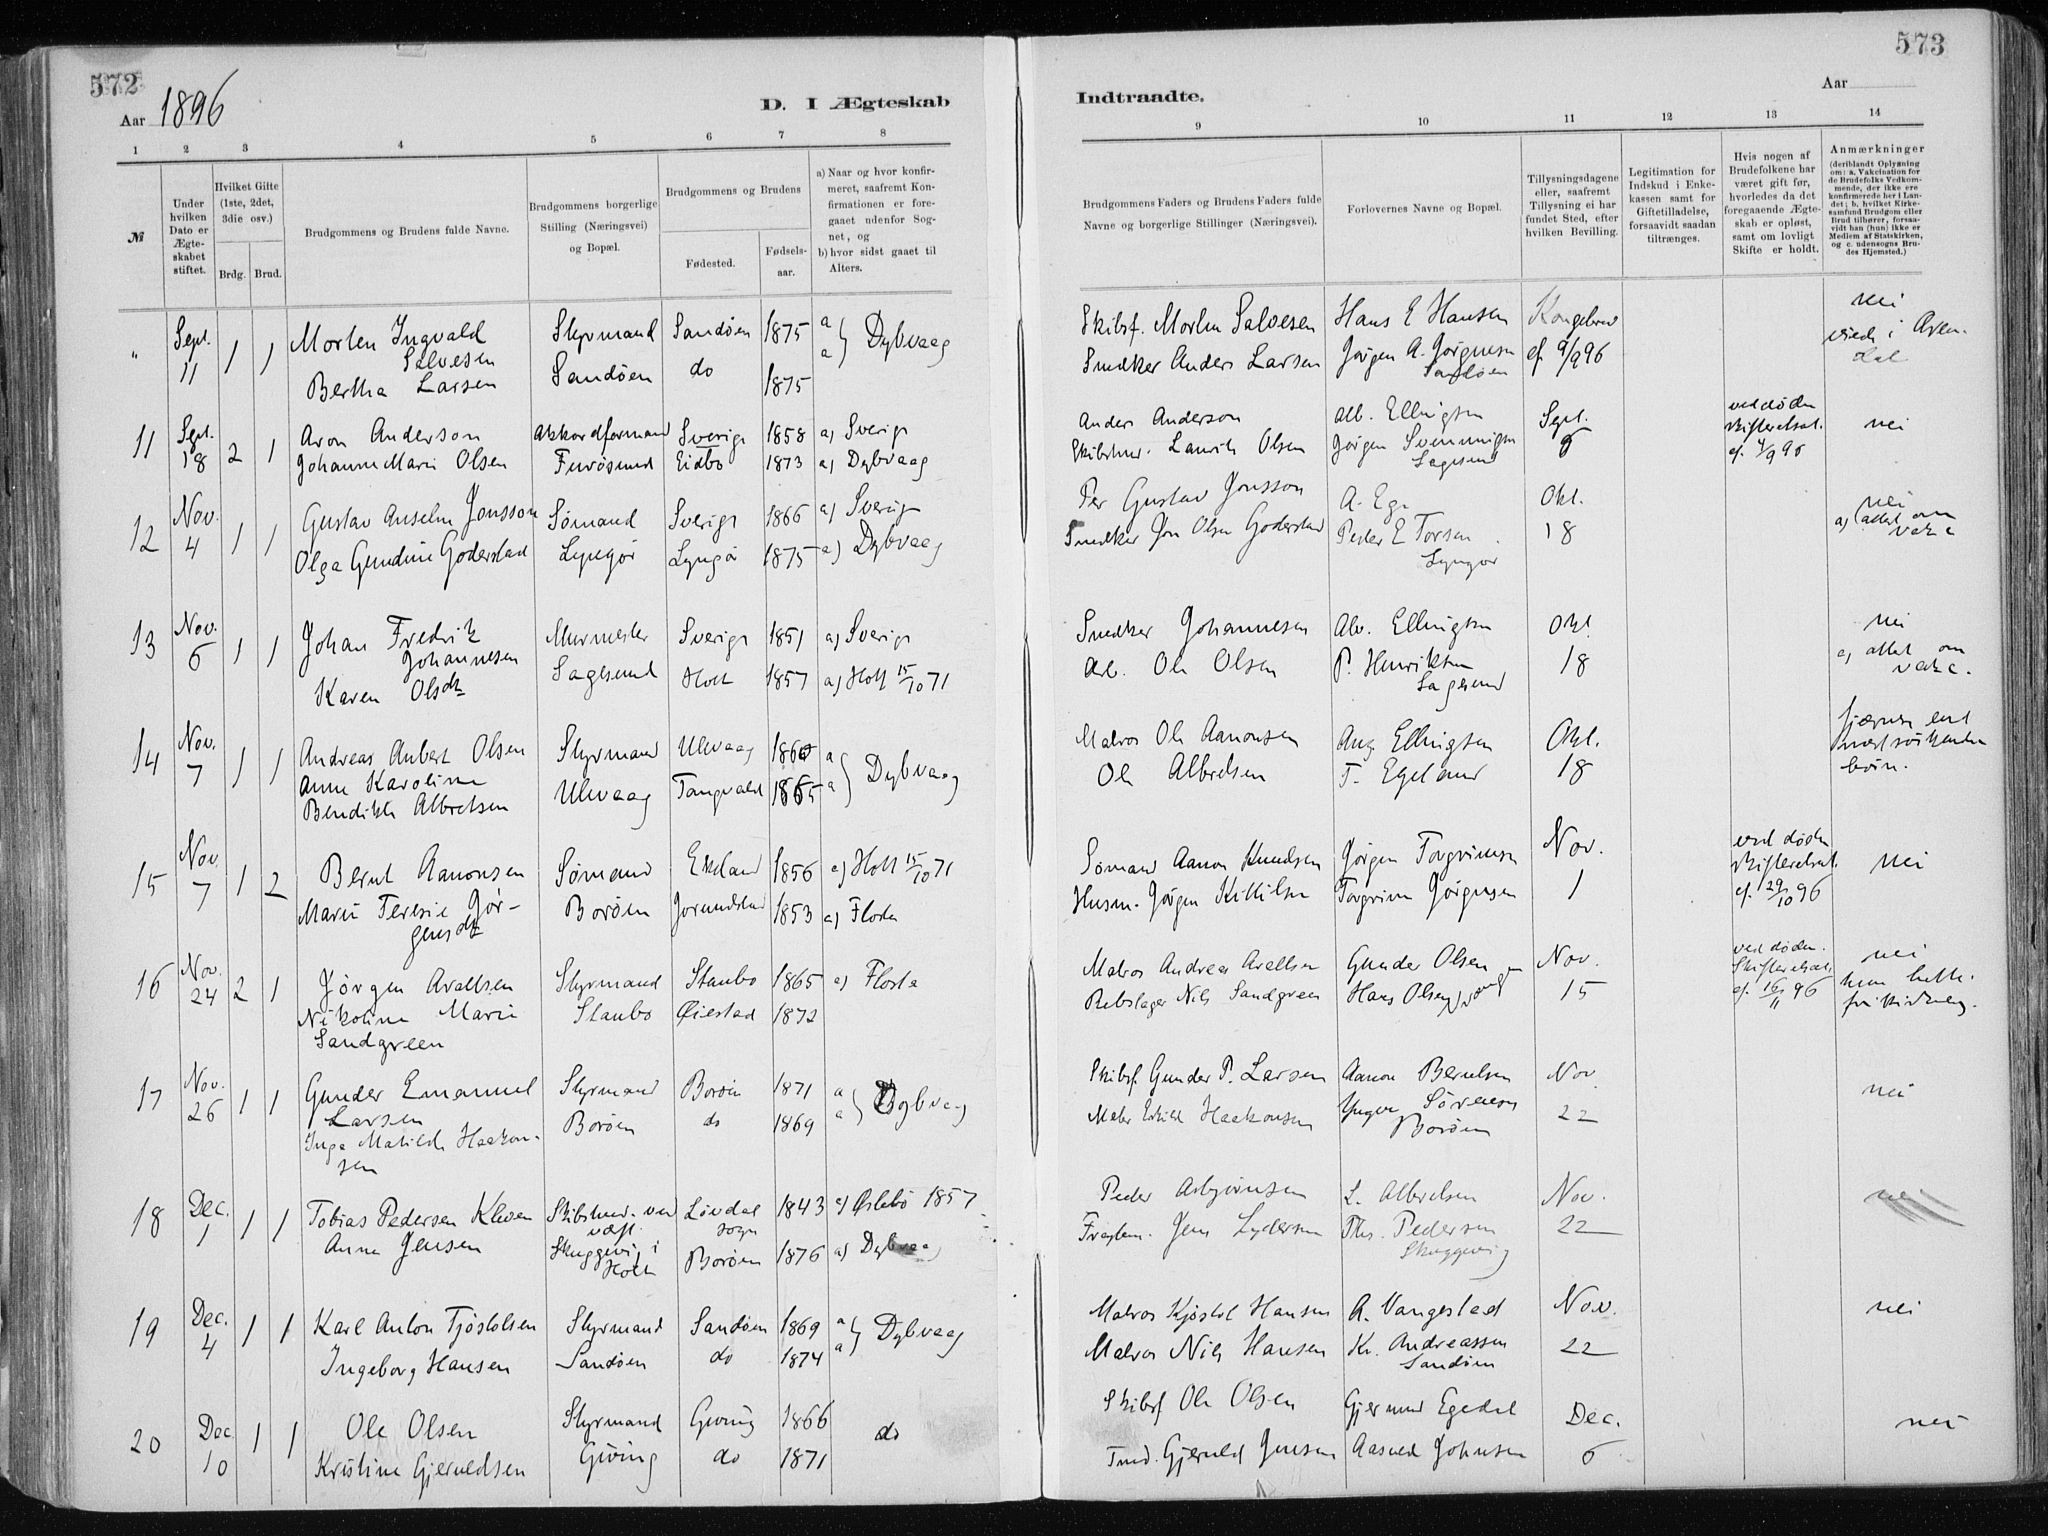 572
Aar 1896
D. I Ægteskab
1 2 3 4 5 6 7 8
№
Under hvilken Dato er Ægte-skabet stiftet.
Hvilket Gifte (1ste, 2det, 3die osv.)
Brdg. Brud.
Brudgommens og Brudens fulde Navne.
Brudgommens borgerlige Stilling (Næringsvei) og Bopæl.
Brudgommens og Brudens
Fødested. Fødsels-aar.
a) Naar og hvor konfir-meret, saafremt Kon-firmationen er fore-gaaet udenfor Sog-net, og
b) hvor sidst gaaet til Alters.
" Sept. 11 1 1 Morten Ingvald Salvesen Styrmand Sandøen 1875 a
Bertha Larsen Sandøen do 1875 a Dybvaag
11 Sept. 18 2 1 Aron Anderson Akkordformand Sverige 1858 a) Sverige
Johanne Marie Olsen Furøsund Eidbo 1873 a) Dybvaag
12 Nov. 4 1 1 Gustav Anselm Jonsson Sømand Sverige 1866 a) Sverige
Olga Gundine Goderstad Lyngør Lyngør 1875 a) Dybvaag
13 Nov. 6 1 1 Johan Fredrik Johannesen Murmester Sverige 1851 a) Sverige
Karen Olsdtr Sagesund Holt 1857 a) Holt 15/10 71
14 Nov. 7 1 1 Andreas Anbert Olsen Styrmand Ulevaag a
Anne Karoline Bendikte Albretsen Ulevaag Tangvald 1865 a Dybvaag
15 Nov. 7 1 2 Bernt Aanonsen Sømand Ekeland 1856 a) Holt 15/10 71
Marie Teresie Jør-gensdtr Borøen Jorundstad 1853 a) Flosta
16 Nov. 24 2 1 Jørgen Avaldsen Styrmand Staubo 1865 a) Flosta
Nikoline Marie Sandgreen Staubo Øiestad 1872
17 Nov. 26 1 1 Gunder Emanuel Larsen Styrmand Borøen 1871 a
Inga Matilde Haakon-sen Borøen do 1869 a Dybvaag
18 Dec. 1 1 1 Tobias Pedersen Kleven Løvdal sogn 1843 a) Øslebø 1857
Anna Jensen Skuggevig i Holt Borøen 1876 a) Dybvaag
19 Dec. 4 1 1 Karl Anton Tjøstolsen Styrmand Sandøen 1869 a
Ingeborg Hansen Sandøen do 1874 a Dybvaag
20 Dec 10 1 1 Ole Olsen Styrmand Gjeving 1866 do
Kristine Gjeruldsen Gjeving do 1871
573
Indtraadte.
Aar
9 10 11 12 13 14
Brudgommens Faders og Brudens Faders fulde Navne og borgerlige Stillinger (Næringsvei).
Forlovernes Navne og Bopæl.
Tillysningsdagene eller, saafremt Tillysning ei har fundet Sted, efter hvilken Bevilling.
Legitimation for Indskud i Enke-kassen samt for Giftetilladelse, forsaavidt saadan tiltrænges.
Hvis nogen af Brudefolkene har været gift før, hvorledes da det foregaaende Ægte-skab er opløst, samt om lovligt Skifte er holdt.
Anmærkninger
(deriblandt Oplysning om: a. Vakcination for de Brudefolks Vedkom-mende, der ikke ere konfirmerede her i Lan-det; b. hvilket Kirke-samfund Brudgom eller Brud tilhører, forsaa-vidt han (hun) ikke er Medlem af Statskirken, og c. udensogns Bru-des Hjemsted.)
Skibsf. Morten Salvesen Hans E Hansen Kongebrev nei
Snedker Anders Larsen Jørgen A. Jørgensen Sandøen af 9/9 96 viede i Aren-dal
Anders Anderson Alb. Ellingsen Sept. ved døden
Skibstmr. Lauritz Olsen Jørgen Svenningsen Sagesund 6 skifteretsat. nei
Per Gustav Jonsson A. Ege Okt. nei
Snedker Jon Olsen Goderstad Peder E Torsen Lyngør 18 a) attest om vakc
Snedker Johannesen Alb. Ellingsen Okt. nei
Arb. Ole Olsen P. Henriksen Sagesund 18 a) attest om vakc.
Matros Ole Aanonsen Aug Ellingsen Okt.
Ole Albretsen T. Egeland 18
Sømand Aanon Knudsen Jørgen Torgrimsen Nov. ved døden
Husm. Jørgen Kittilsen Torgrim Jørgensen 1 skifteretsat. af 29/10 96 nei
Matros Andreas Avaldsen Gunder Olsen Nov. ved døden. nei
Rebslager Nils Sandgreen Hans Olsen 15 Skifteretsat. af. 16/11 96 frikirken
Skibsf. Gunder P. Larsen Aanon Berntsen Nov. nei
Haakonsen Yngvar Sørensen Borøen 22
Peder Asbjørnsen L. Albretsen Nov. nei
Jens Lydersen Ths. Pedersen Skuggevig 22
Matros Kjøstol Hansen A. Vangestad Nov. nei
Matros Nils Hansen Kr. Andreassen Sandøen 22
Skibsf Ole Olsen Gjermund Egedal Dec. nei
Tmd. Gjeruld Jensen Aasuld Johnsen 6